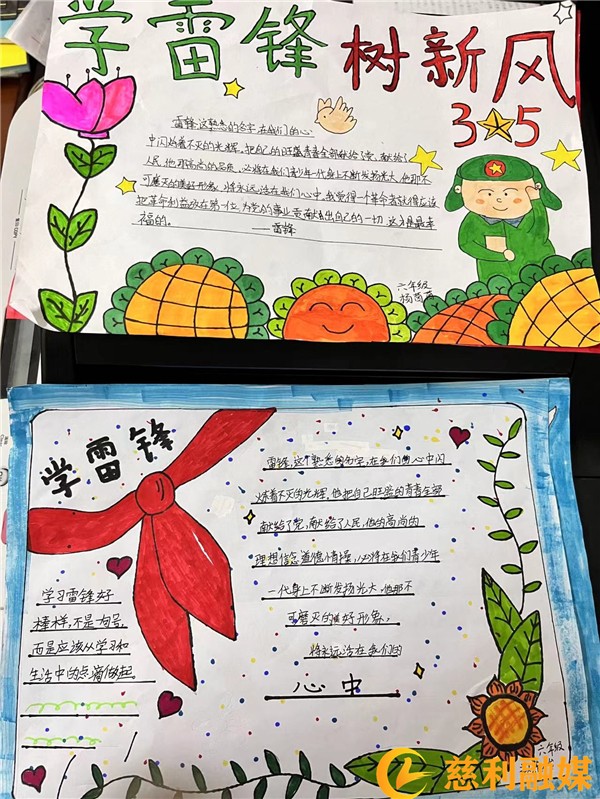 学雷锋 树新风
3 5
雷锋这熟悉的名字,在我们的心
中闪烁着不灭的光辉。把自己的旺盛青春全部献给了党,献给了
人民,他那崇高的品质,必将在我们青少年一代身上不断发扬光大,他那不
可磨灭的美好形象,将永远活在我们心中。我觉得一个革命者就很应该
把革命利益放在第一位,为党的事业贡献出自己的一切,这才是最幸
福的。
——雷锋
六年级
学雷锋
雷锋,这个熟悉的名字,在我们的心中闪
烁着不灭的光辉,他把自己旺盛的青春全部
献给了党,献给了人民,他的高尚的
理想信念道德情操,必将在我们青少年
一代身上不断发扬光大,他那不
可磨灭的美好形象,
将永远活在我们的
心中
学习雷锋好
榜样,不是句号,
而是应该从学习和
生活中的点滴做起。
六年级
慈利融媒